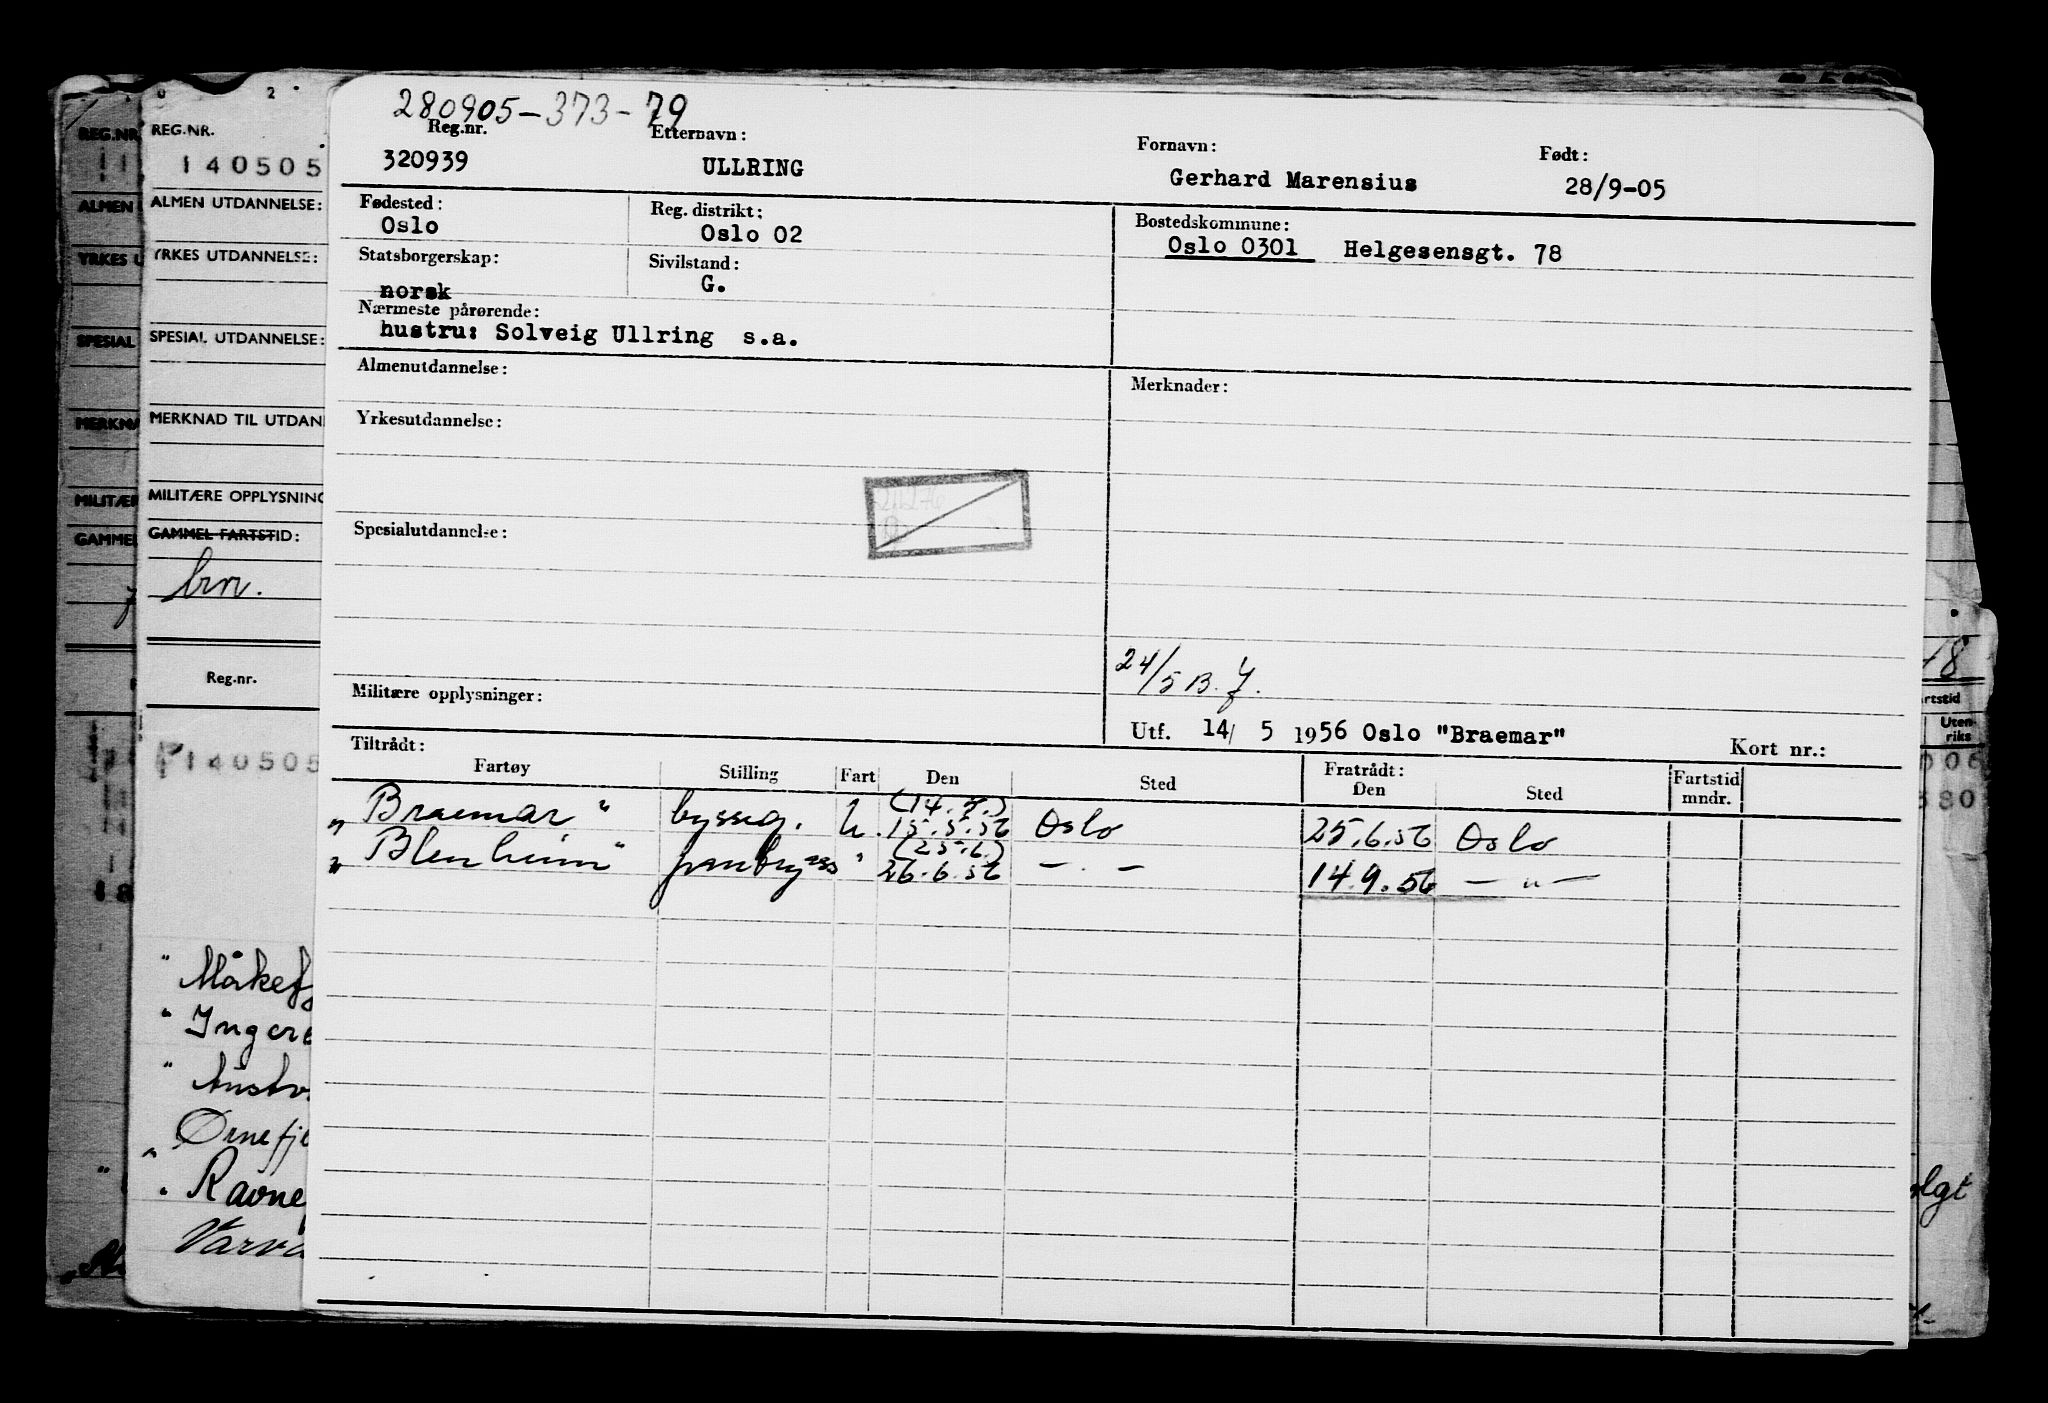 280905-373-79
Reg.nr. Etternavn: Fornavn: Født:
320939 ULLRING Gerhard Marensius 28/9-05
Fødested: Reg. distrikt: Bostedskommune:
Oslo Oslo 02 Oslo 0301 Helgesensgt. 78
Statsborgerskap: Sivilstand:
norsk G.
Nærmeste pårørende:
hustru: Solveig Ullring s.a.
Almenutdannelse: Merknader:
Yrkesutdannelse:
Spesialutdannelse:
24/5 B. J.
Militære opplysninger:
Utf. 14/ 5 1956 Oslo "Braemar" Kort nr.:
Tiltrådt: Fratrådt:
Fartøy Stilling Fart Den Sted Den Sted Fartstid mndr.
(14.5.)
"Braemar" bysseg. U. 15.5.56 Oslo 25.6.56 Oslo
(25.6.)
"Blenheim" " 26.6.56 — . — 14.9.56 — " —
REG.NR
ALMEN
YRKES U
SPESIAL
MERKNA
MILITÆR
GAMMEL
REG.NR.
140505
ALMEN UTDANNELSE:
YRKES UTDANNELSE:
SPESIAL UTDANNELSE:
MERKNAD TIL UTDAN
MILITÆRE OPPLYSNING
GAMMEL FARTSTID:
Reg.nr.
140505
" Måkef
" Inger
" Austv
Ørnefj
" Ravne
Varva
18
rtstid
Uten-
riks
006
380
olgt